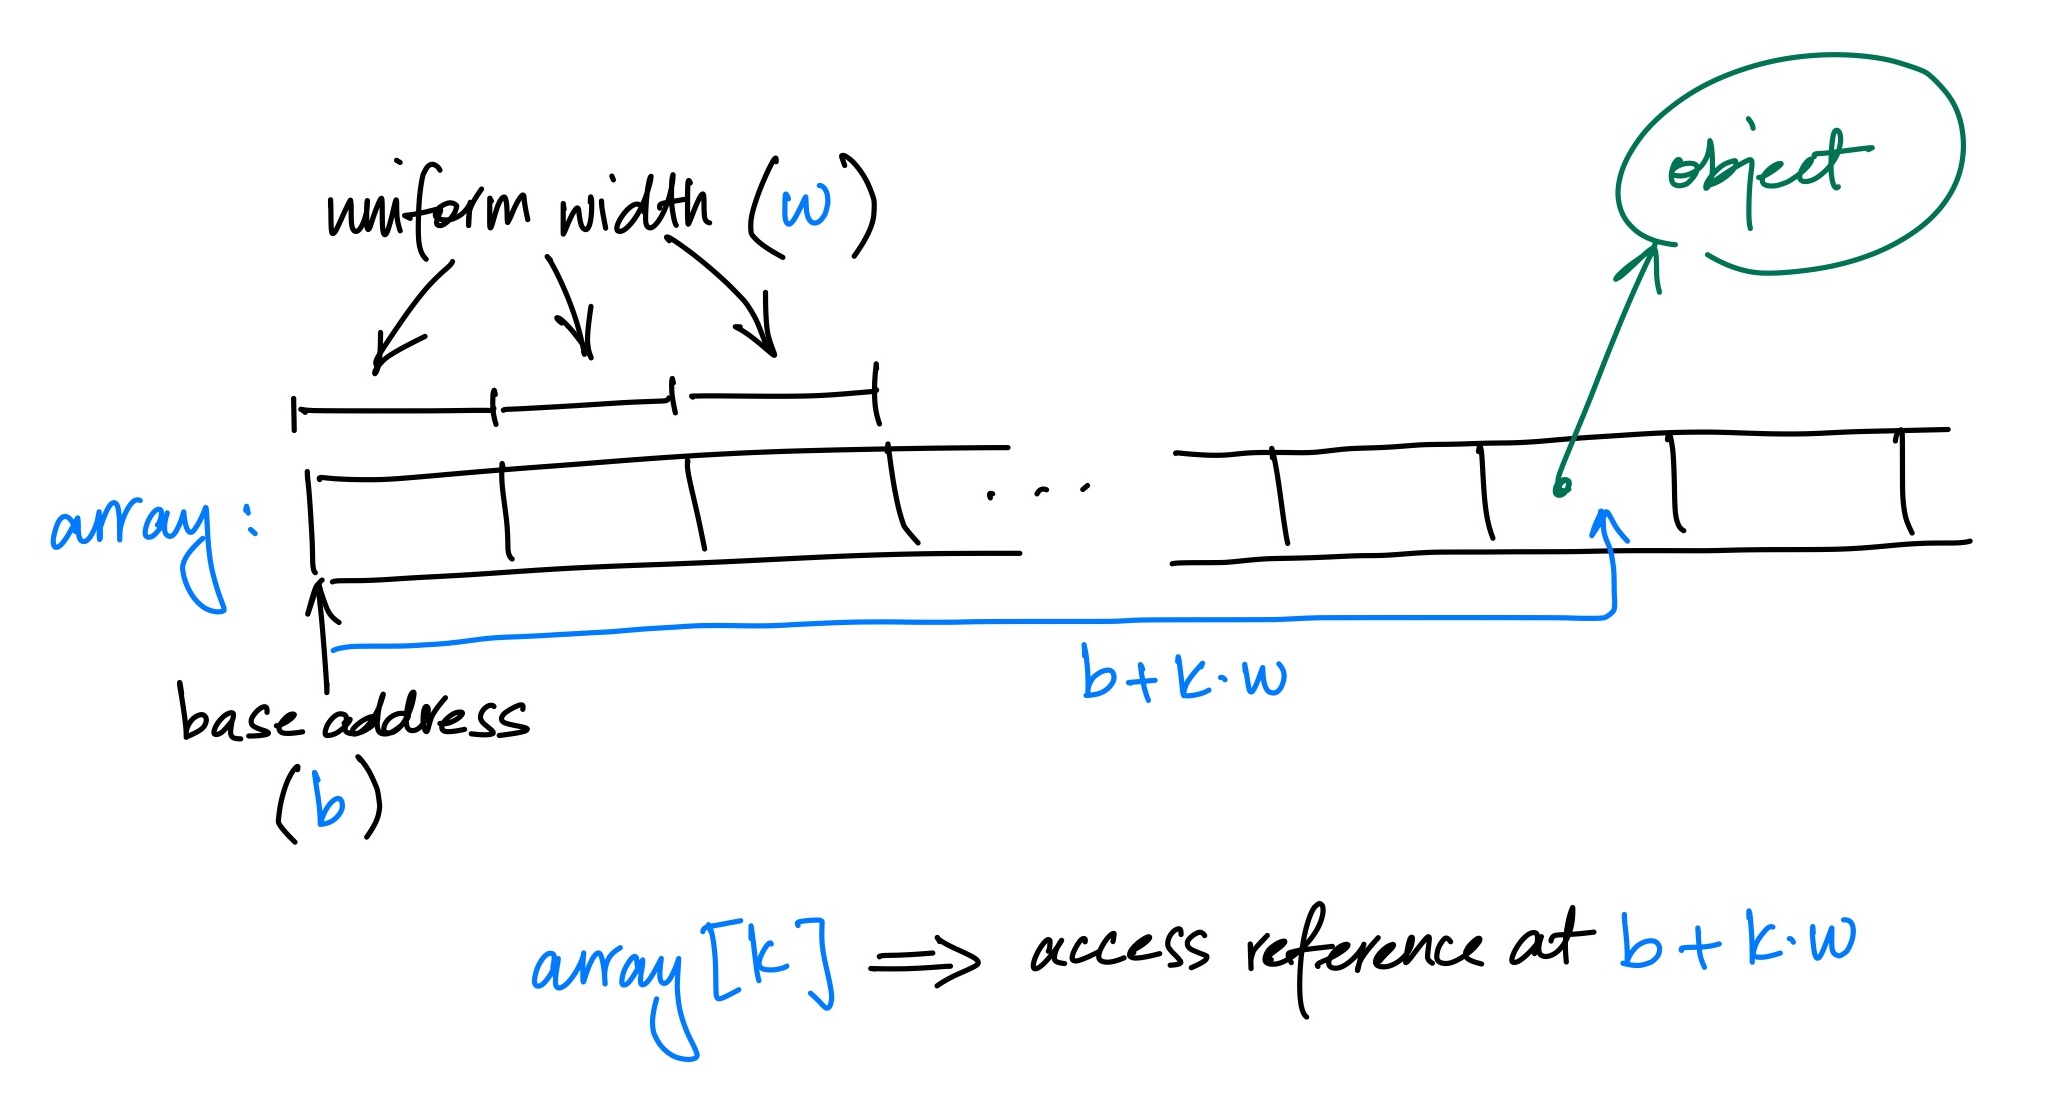 object
uniform width (w)
array:
...
b+k·w
base address
(b)
array[k] ⟹ access reference at b+k·w